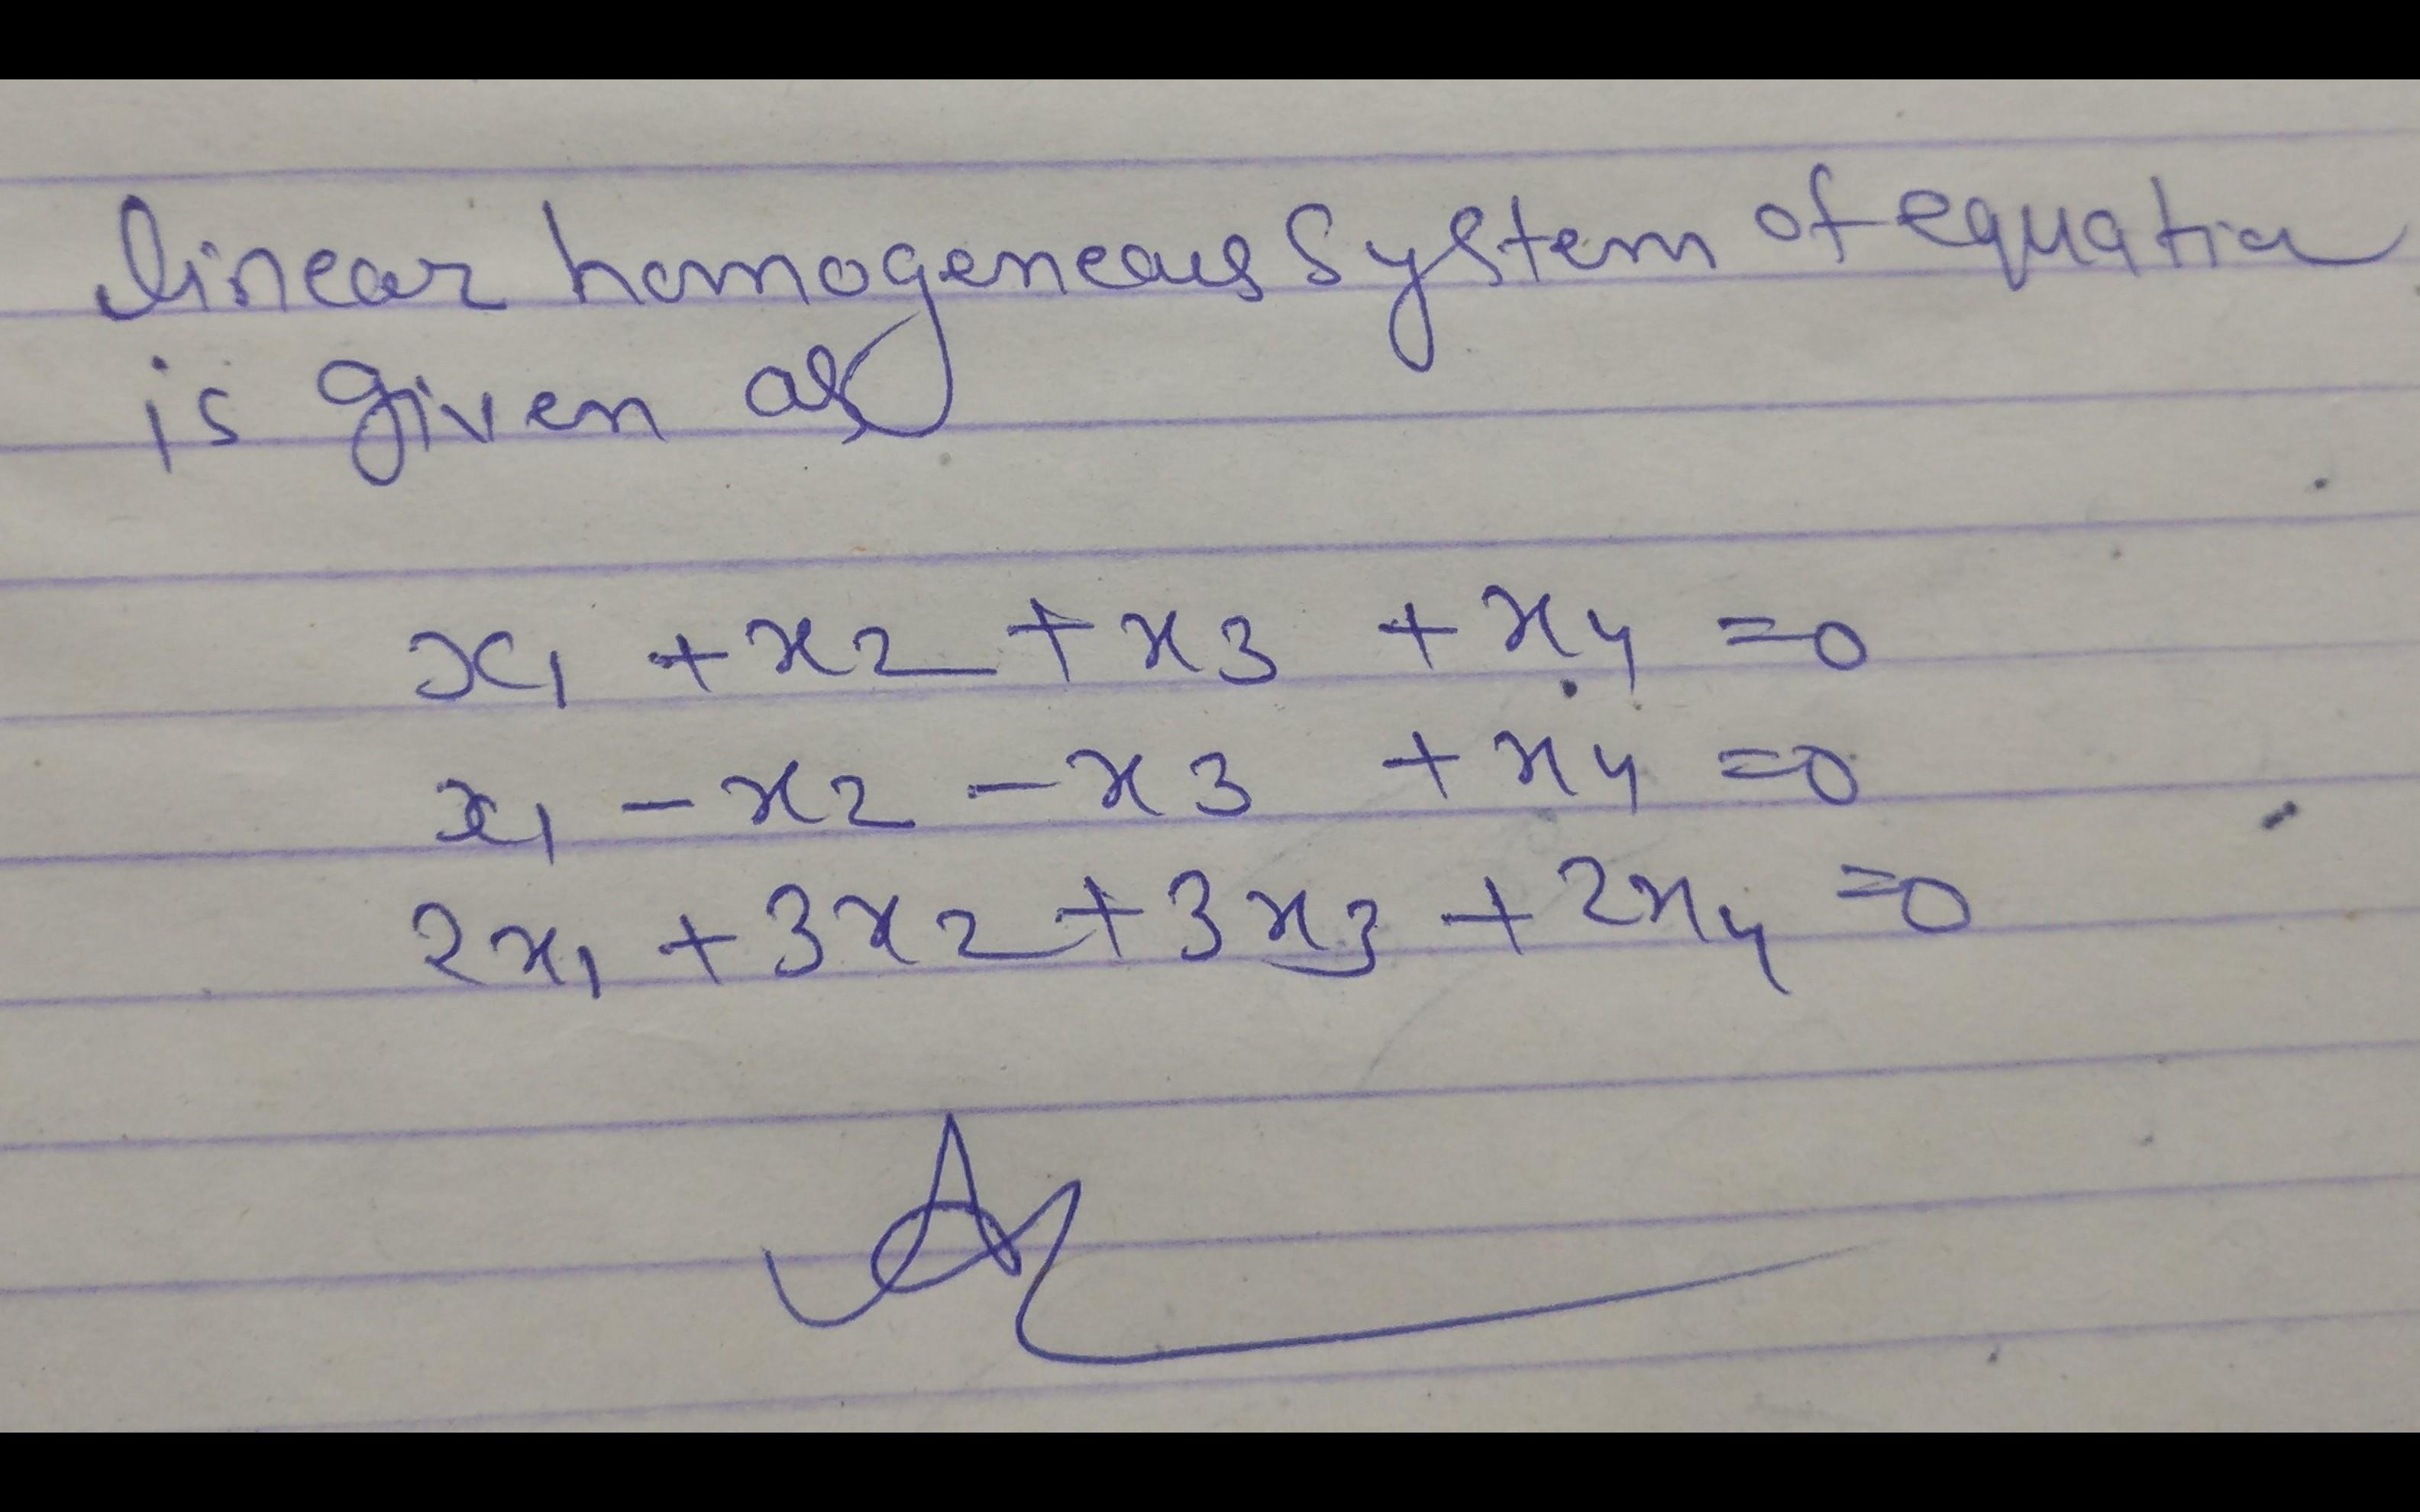 linear homogeneous system of equation
is given as
x1 + x2 + x3 + x4 = 0
x1 - x2 - x3 + x4 = 0
2x1 + 3x2 + 3x3 + 2x4 = 0